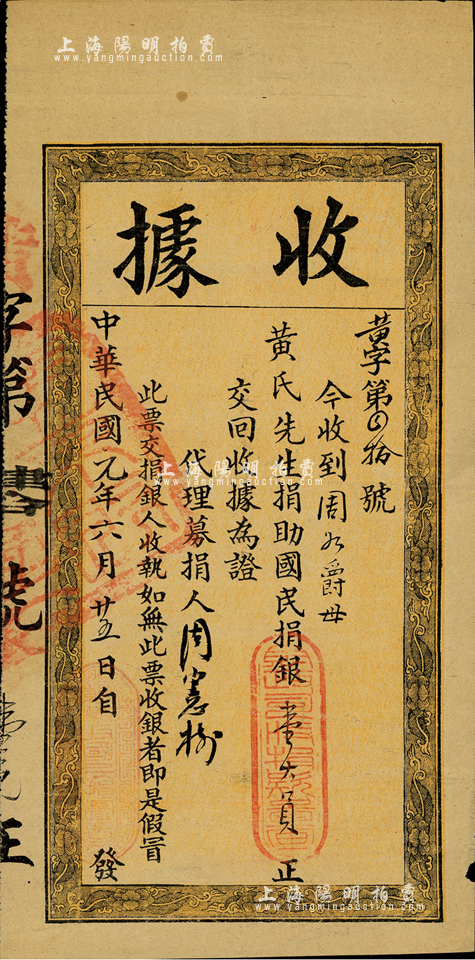 上海陽明拍賣
www.yangmingauction.com
收據
黃字第四拾號
今收到周九爵毌
黃氏先生捐助國民捐銀壹大員正
交回收據為證
代理募捐人周憲樹
此票交捐銀人收執如無此票收銀者即是假冒
中華民國元年六月廿五日自發
字第
號
上海陽明拍賣
www.yangmingauction.com
上海陽明拍賣
www.yangmingauction.com